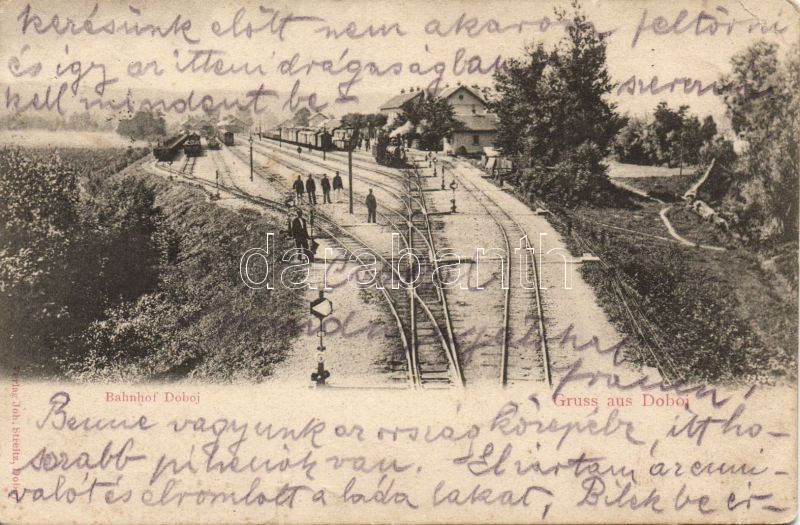 kerésünk előtt nem akarom feltörni
és igy az itteni drágaságban szerezni
kell mindent be-
darabanth
Bahnhof Doboj
Gruss aus Doboj
Verlag Joh. Streitz, Doboj
Benne vagyunk az ország közepébe, itt ho-
szabb pihenőnk van. Elvártam az enni-
valót és elromlott a láda lakat, Bilek be ér-